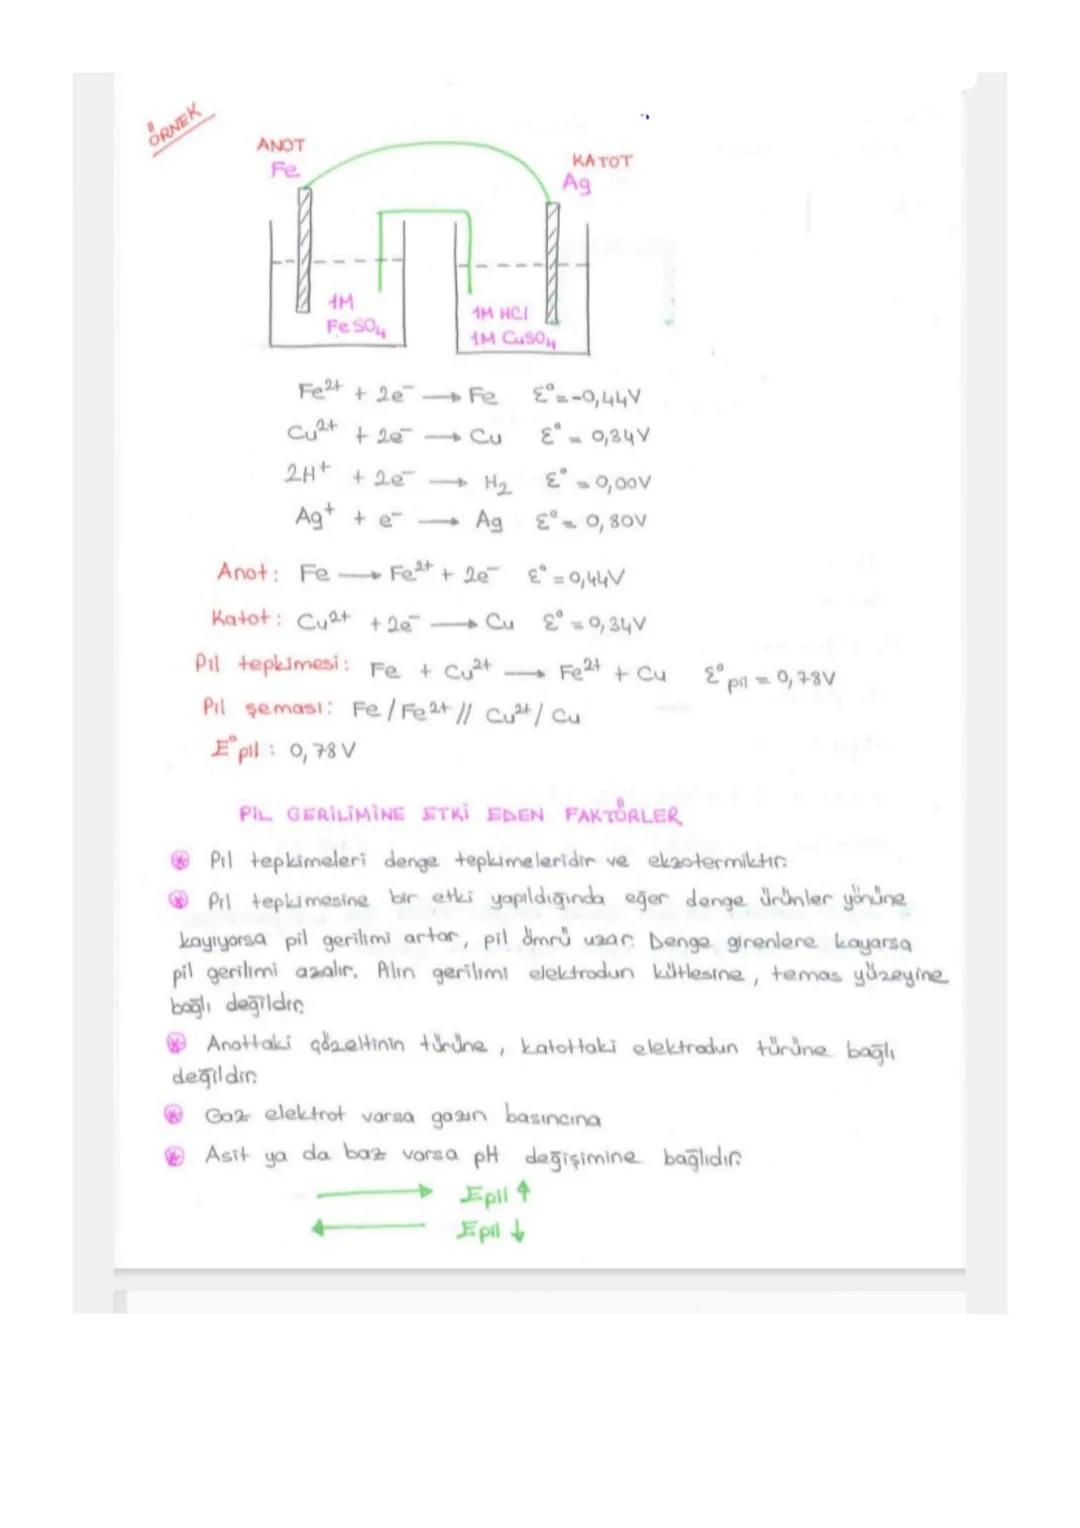 ÖRNEK
ANOT
Fe
KATOT
Ag
1M
FeSO₄
1M HCl
1M CuSO₄
Fe²⁺ + 2e⁻ → Fe Ɛ° = -0,44V
Cu²⁺ + 2e⁻ → Cu Ɛ° = 0,34V
2H⁺ + 2e⁻ → H₂ Ɛ° = 0,00V
Ag⁺ + e⁻ → Ag Ɛ° = 0,80V
Anot: Fe → Fe²⁺ + 2e⁻ Ɛ° = 0,44V
Katot: Cu²⁺ + 2e⁻ → Cu Ɛ° = 0,34V
Pil tepkimesi: Fe + Cu²⁺ → Fe²⁺ + Cu Ɛ°pil = 0,78V
Pil şeması: Fe/Fe²⁺// Cu²⁺/Cu
E°pil: 0,78V
PİL GERİLİMİNE ETKİ EDEN FAKTÖRLER
Pil tepkimeleri denge tepkimeleridir ve ekzotermiktir.
Pil tepkimesine bir etki yapıldığında eğer denge ürünler yönüne
kayıyorsa pil gerilimi artar, pil ömrü uzar. Denge girenlere kayarsa
pil gerilimi azalır. Alın gerilimi elektrodun kütlesine, temas yüzeyine
bağlı değildir.
Anottaki çözeltinin türüne, katottaki elektrodun türüne bağlı
değildir.
Gaz elektrot varsa gazın basıncına
Asit ya da baz varsa pH değişimine bağlıdır.
→ Epil ↑
← Epil ↓